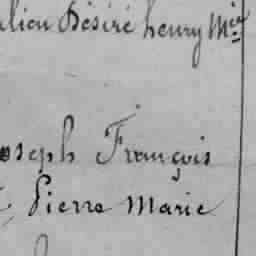 ulien Désiré henry Mie
oseph François
Pierre Marie